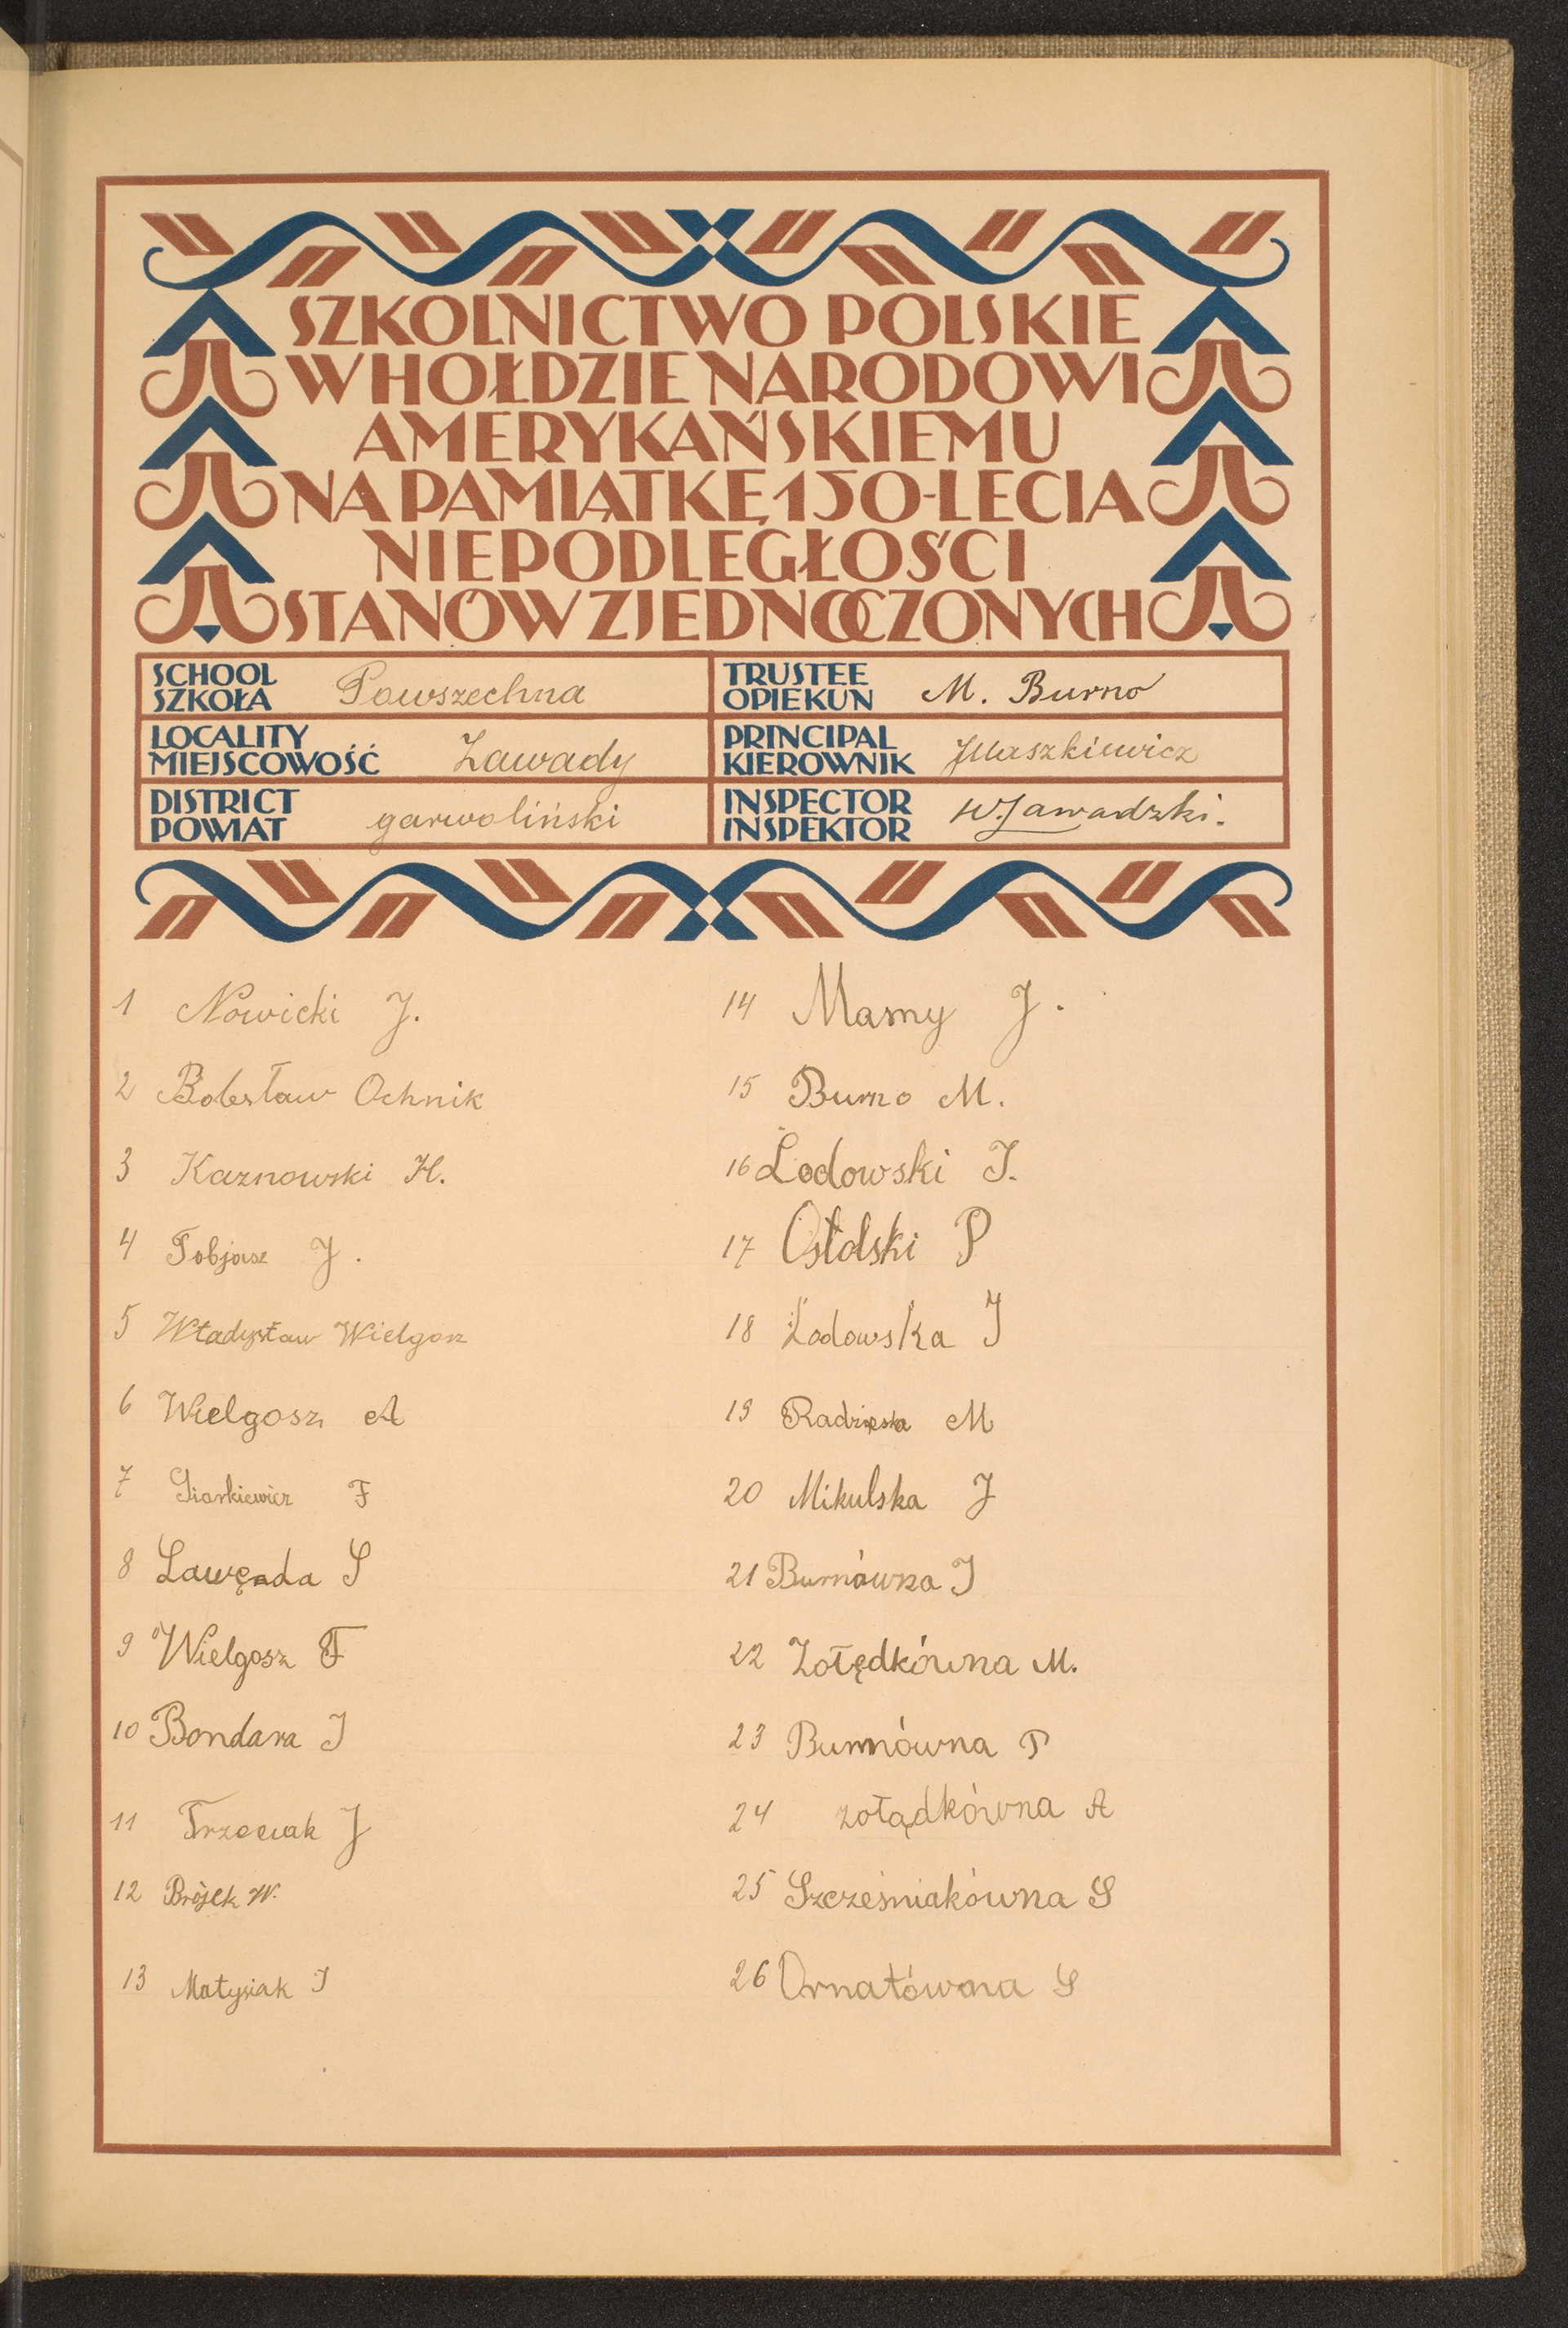 SZKOLNICTWO POLSKIE
W HOŁDZIE NARODOWI
AMERYKAŃSKIEMU
NA PAMIĄTKĘ 150-LECIA
NIEPODLEGŁOŚCI
STANÓW ZJEDNOCZONYCH
SCHOOL
SZKOŁA Powszechna
TRUSTEE
OPIEKUN M. Burno
LOCALITY
MIEJSCOWOŚĆ Zawady
PRINCIPAL
KIEROWNIK
DISTRICT
POWIAT garwoliński
INSPECTOR
INSPEKTOR W. Zawadzki.
1 Nowicki J.
2 Bolesław Ochnik
3 Kaznowski H.
4 Tobjasz J.
5 Władysław Wielgosz
6 Wielgosz A
7 F
8 Lawęnda S
9 Wielgosz F
10 Bondara J
11 Trzeciak J
12 Brójek W.
13 Matysiak J
14 Mamy J.
15 Burno M.
16 Lodowski J.
17 Osłolski P
18 Lodowska J
19 M
20 Mikulska J
21 Burnówna J
22 Zołędkówna M.
23 Burnówna P
24 zołądkówna A
25 Szcześniakówna S
26 Ornatówna S